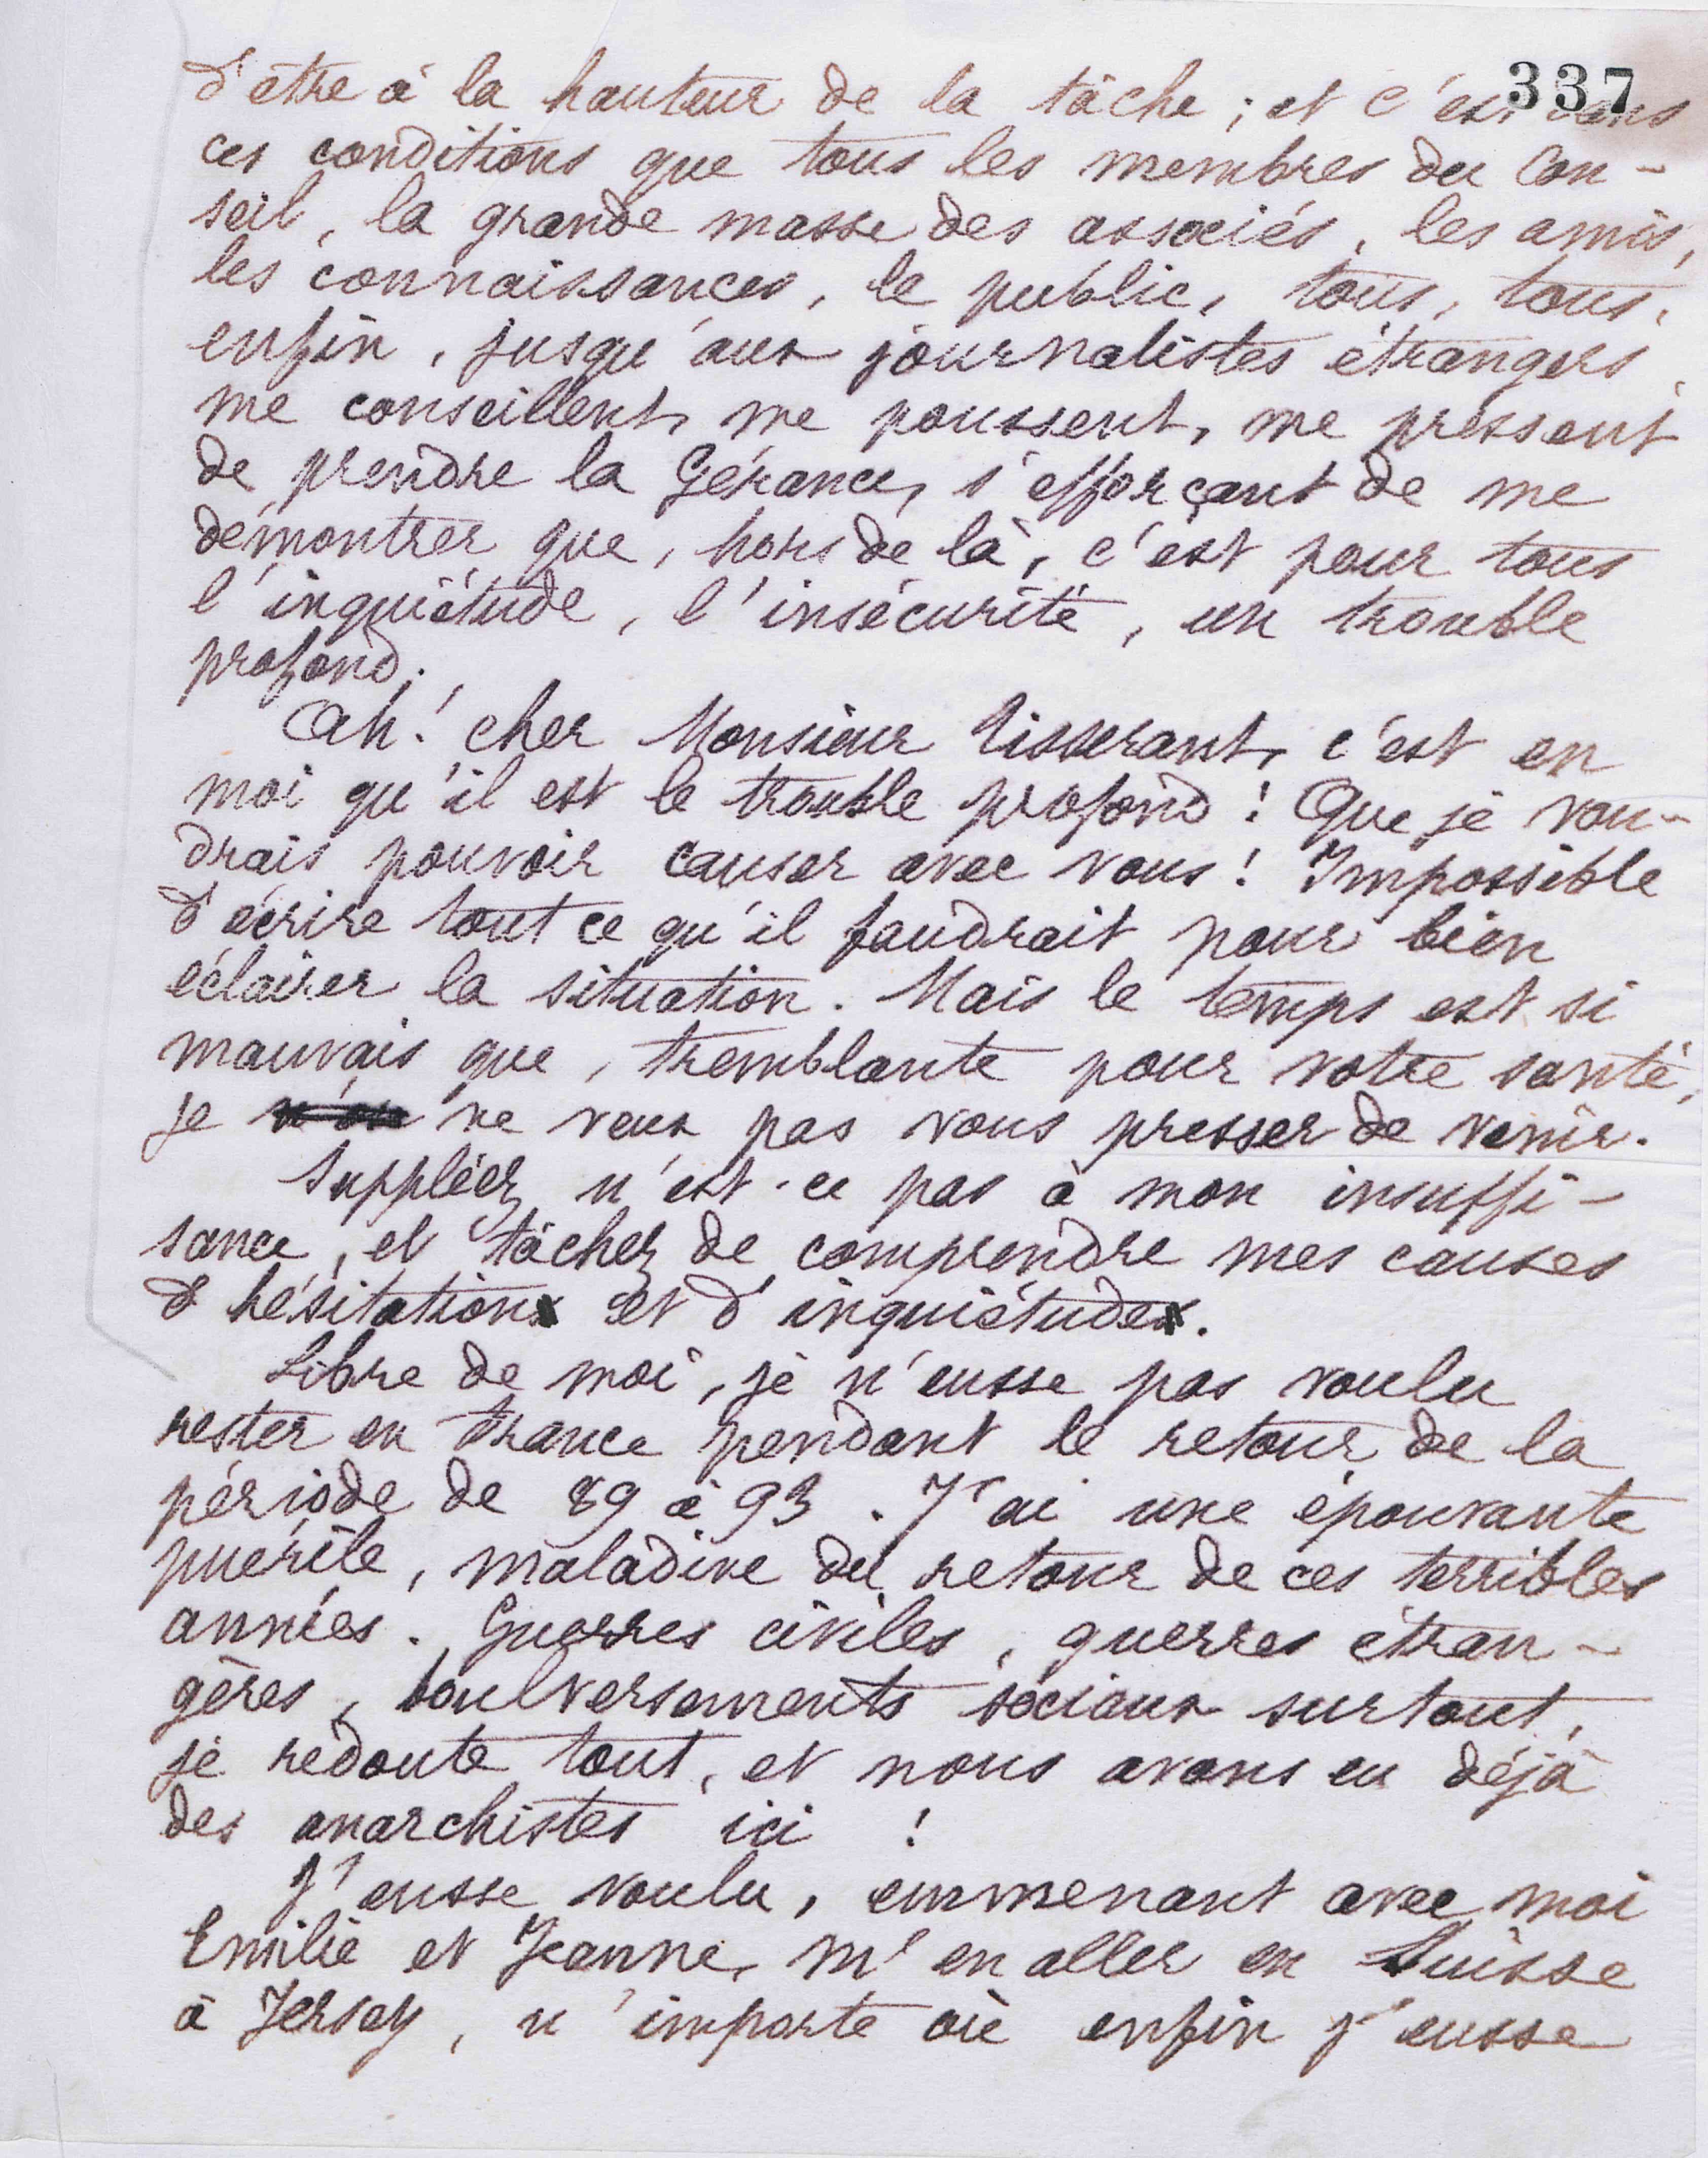 337
d'être à la hauteur de la tâche ; et c'est dans
ces conditions que tous les membres du Con-
seil, la grande masse des associés, les amis,
les connaissances, le public, tous, tous,
enfin, jusqu'aux journalistes étrangers
me conseillent, me poussent, me pressent
de prendre la Gérance, s'efforçant de me
démontrer que, hors de là, c'est pour tous
l'inquiétude, l'insécurité, un trouble
profond.
Ah ! cher Monsieur Tisserant, c'est en
moi qu'il est le trouble profond ! Que je vou-
drais pouvoir causer avec vous ! Impossible
d'écrire tout ce qu'il faudrait pour bien
éclairer la situation. Mais le temps est si
mauvais que, tremblante pour votre santé,
je ne veux pas vous presser de venir.
Suppléez n'est-ce pas à mon insuffi-
sance, et tâchez de comprendre mes causes
d'hésitation et d'inquiétude.
Libre de moi, je n'eusse pas voulu
rester en France pendant le retour de la
période de 89 à 93. J'ai une épouvante
puérile, maladive du retour de ces terribles
années. Guerres civiles, guerres étran-
gères, bouleversements sociaux surtout,
je redoute tout, et nous avons eu déjà
des anarchistes ici !
J'eusse voulu, emmenant avec moi
Emilie et Jeanne, m'en aller en Suisse
à Jersey, n'importe où enfin j'eusse